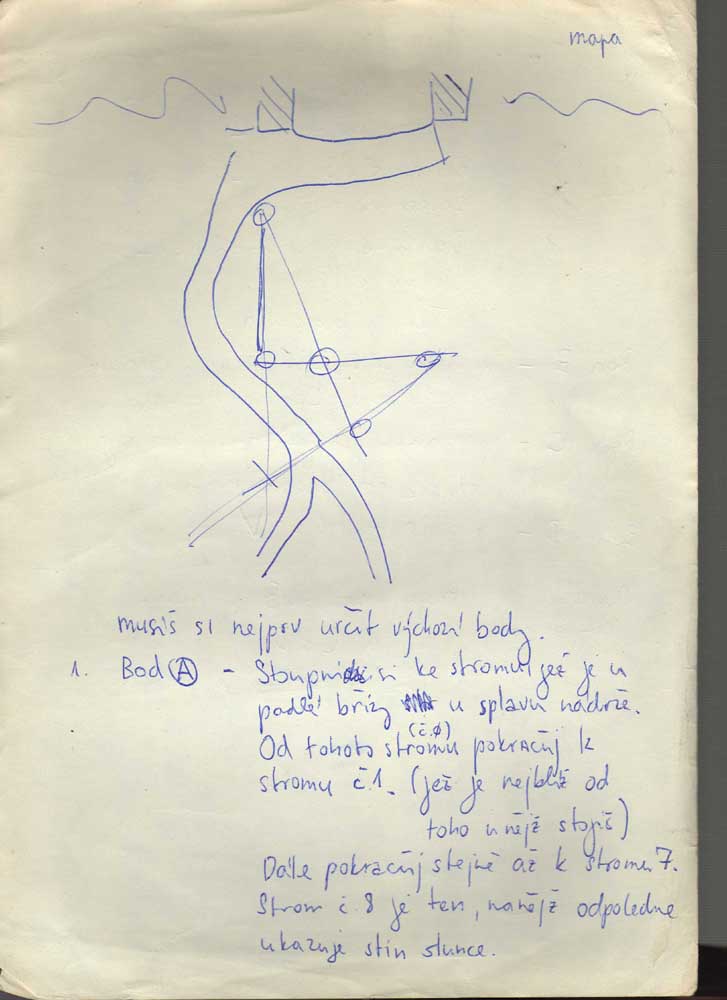 mapa
musíš si nejprv určit výchozí body.
1. Bod Ⓐ - Stoupni si ke stromu jež je u
padlé břízy u splavu nádrže.
(č.ø)
Od tohoto stromu pokračuj k
stromu č.1. (jež je nejblíž od
toho u nějž stojíš)
Dále pokračuj stejně až k stromu 7.
Strom č.8 je ten, na nějž odpoledne
ukazuje stín slunce.